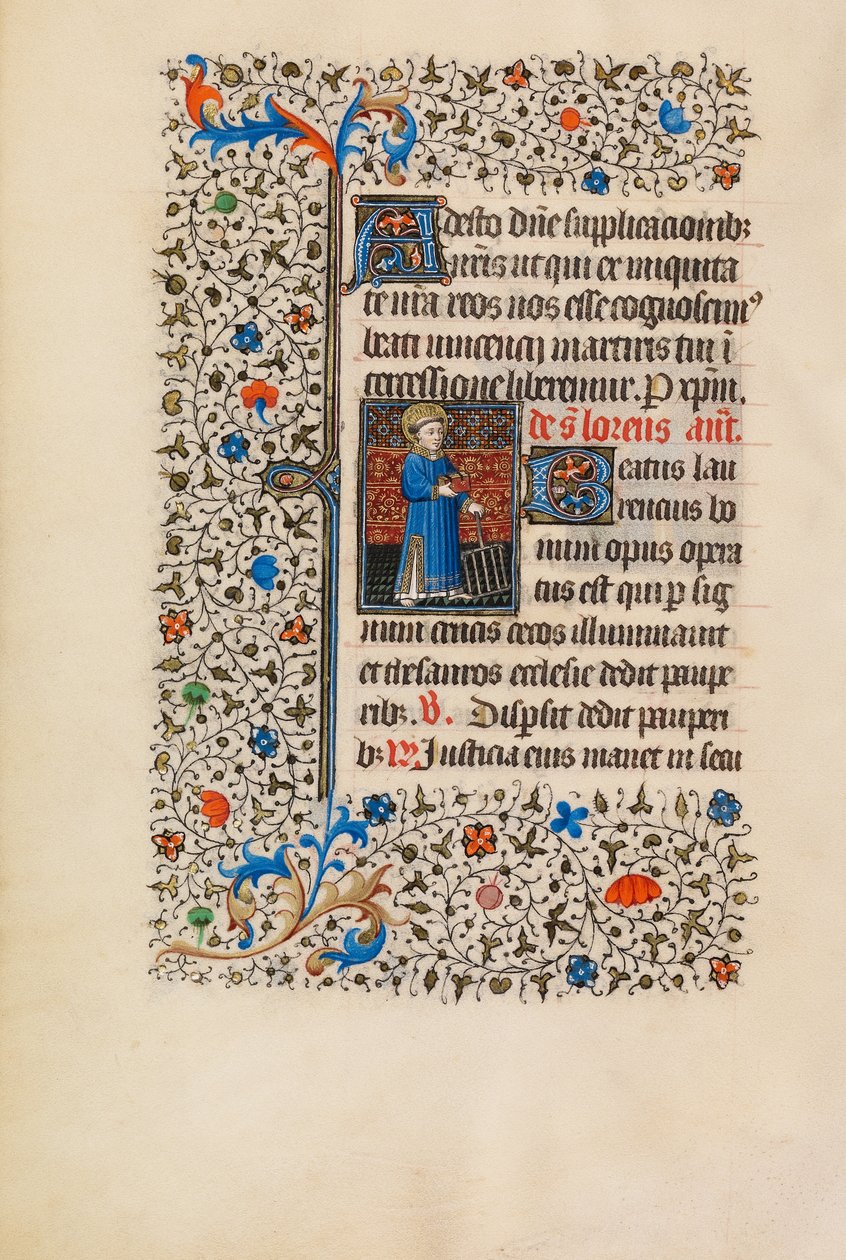 Adesto dn̄e supplicacionibꝫ
nr̄is ut qui ex iniquita
te nr̄a reos nos esse cognoscimꝰ
beati vincencij martiris tui ī
tercessione liberemur. P xp̄m.
de s̄ lorens an̄t.
Beatus lau
rencius bo
num opus opera
tus est qui ꝑ sig
num crucis cecos illuminauit
et thesauros ecclesie dedit paupe
ribꝫ. V. Dispersit dedit pauperi
bꝫ R. Justicia eius manet in secu